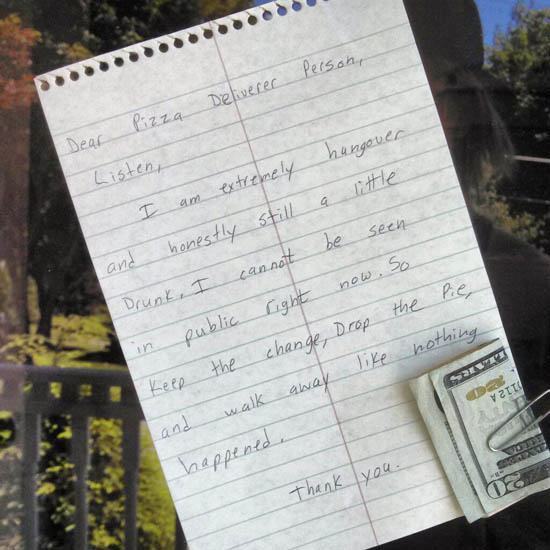 Dear Pizza Deliverer Person,
Listen,
I am extremely hangover
and honestly still a little
Drunk, I cannot be seen
in public right now. So
Keep the change, Drop the Pie,
and walk away like nothing
happened.
Thank you.
20